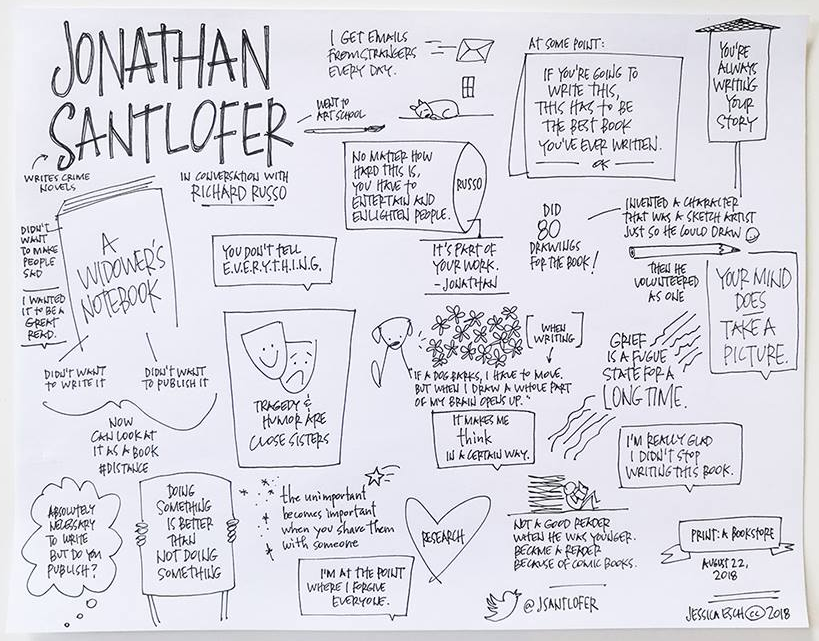 JONATHAN
SANTLOFER
WRITES CRIME
NOVELS
IN CONVERSATION WITH
RICHARD RUSSO
I GET EMAILS
FROM STRANGERS
EVERY DAY.
WENT TO
ART SCHOOL
AT SOME POINT:
IF YOU'RE GOING TO
WRITE THIS,
THIS HAS TO BE
THE BEST BOOK
YOU'VE EVER WRITTEN.
OK
YOU'RE
ALWAYS
WRITING
YOUR
STORY
NO MATTER HOW
HARD THIS IS,
YOU HAVE TO
ENTERTAIN AND
ENLIGHTEN PEOPLE.
RUSSO
IT'S PART OF
YOUR WORK.
- JONATHAN
DID
80
DRAWINGS
FOR THE BOOK!
INVENTED A CHARACTER
THAT WAS A SKETCH ARTIST
JUST SO HE COULD DRAW
THEN HE
VOLUNTEERED
AS ONE
YOUR MIND
DOES
TAKE A
PICTURE.
A
WIDOWER'S
NOTEBOOK
DIDN'T
WANT
TO MAKE
PEOPLE
SAD
I WANTED
IT TO BE A
GREAT
READ.
DIDN'T WANT
TO WRITE IT
DIDN'T WANT
TO PUBLISH IT
NOW
CAN LOOK AT
IT AS A BOOK
#DISTANCE
YOU DON'T TELL
E.V.E.R.Y.T.H.I.N.G.
TRAGEDY &
HUMOR ARE
CLOSE SISTERS
WHEN
WRITING
IF A DOG BARKS, I HAVE TO MOVE.
BUT WHEN I DRAW A WHOLE PART
OF MY BRAIN OPENS UP."
IT MAKES ME
think
IN A CERTAIN WAY.
GRIEF
IS A FUGUE
STATE FOR A
LONG TIME.
I'M REALLY GLAD
I DIDN'T STOP
WRITING THIS BOOK.
ABSOLUTELY
NECESSARY
TO WRITE
BUT DO YOU
PUBLISH?
DOING
SOMETHING
IS BETTER
THAN
NOT DOING
SOMETHING
the unimportant
becomes important
when you share them
with someone
I'M AT THE POINT
WHERE I FORGIVE
EVERYONE.
RESEARCH
NOT A GOOD READER
WHEN HE WAS YOUNGER.
BECAME A READER
BECAUSE OF COMIC BOOKS.
@JSANTLOFER
PRINT: A BOOKSTORE
AUGUST 22,
2018
JESSICA ESCH cc 2018